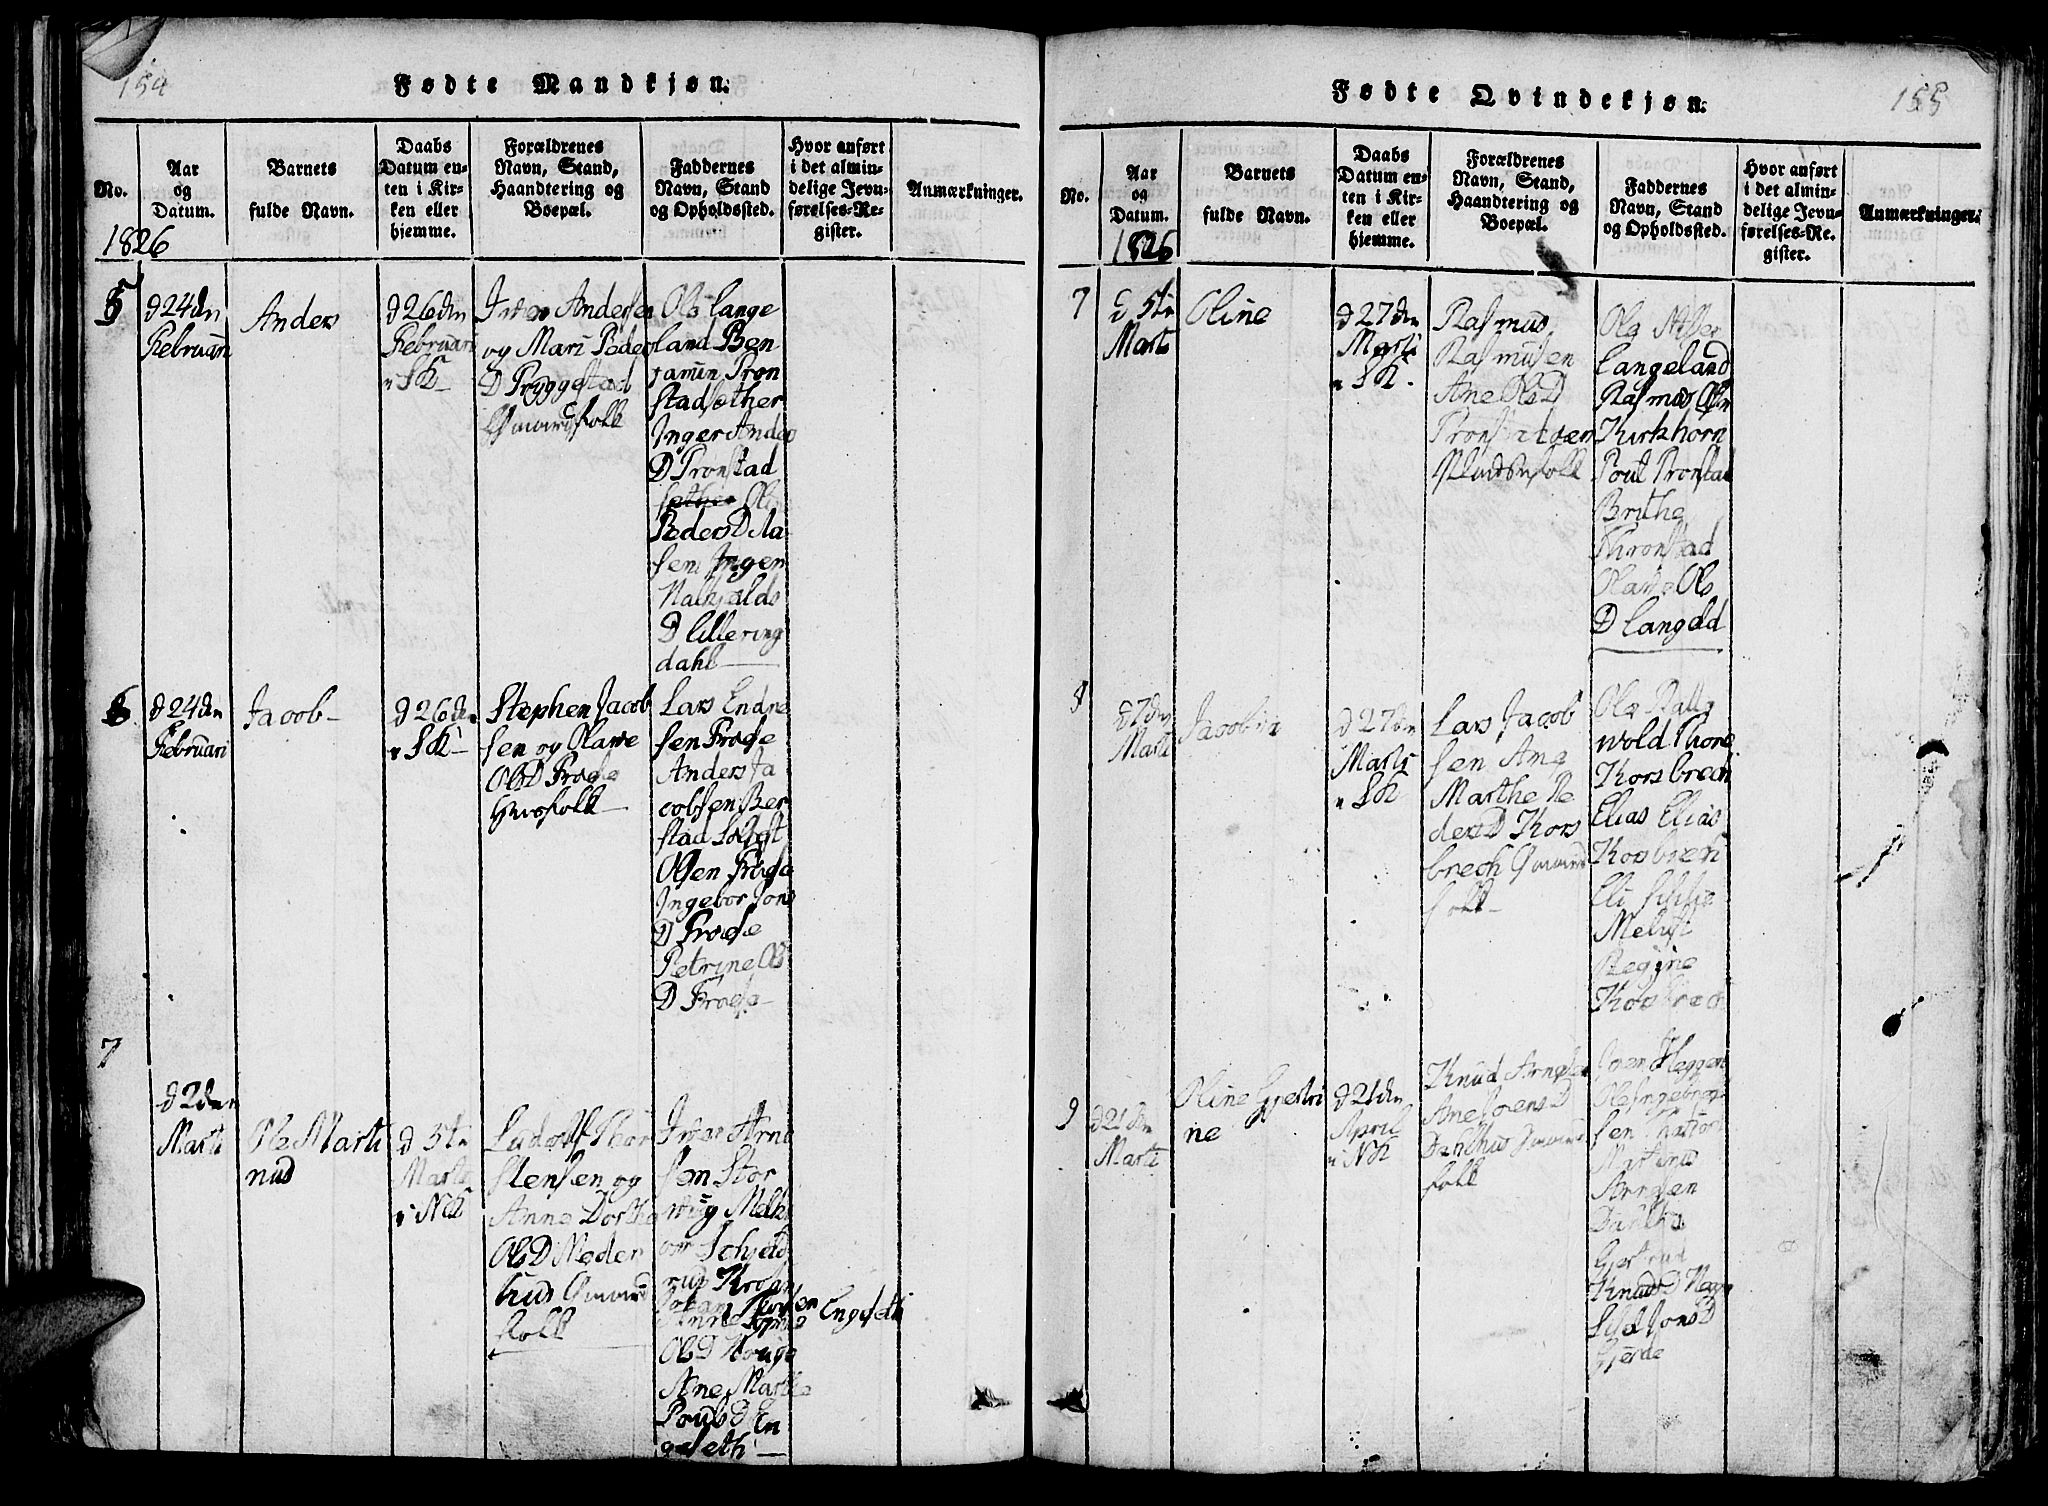 154
Fødte Mandkjøn.
No.
Aar
og
Datum.
Barnets
fulde Navn.
Daabs
Datum en-
ten i Kir-
ken eller
hjemme.
Forældrenes
Navn, Stand,
Haandtering og
Boepæl.
Faddernes
Navn, Stand
og Opholdssted.
Hvor anført
i det almin-
delige Jevn-
førelses-Re-
gister.
Anmærkninger.
1826
5
d 24dn
Februari
Anders
d 26dn
Februari
i SK
Iver Andersen
og Mari Peders
D Tryggestad
Gmandsfolk
Ole Lange
land Ben
jamin Tron
stadsæther
Inger Anders
D Tronstad
sæther Ole
Peders D Aa
sen Inger
D Lillering
dahl
6
d 24dn
Februari
Jacob
d 26dn
i SK
Stephen Jacob
sen og Olave
Ols D Frøese
Huusfolk
Lars Endre
sen Frøese
Anders Ja
cobsen Ber
stad
Olsen Frøese
Ingebor Jons
D Frøese
Petrine Ols
D Frøese
7
d 2den
Marti
Ole Marti
nus
d 5te
Marti
i NK
Ludolf Thor
stensen og
Anne Dorthe
Ols D Neder
huus Gmands
folk
Iver Arne
sen Stor
Melki
or Schjeld
rup
Johan
Anne
Ols D Houge
Ane Marthe
Pouls D En
geseth
Engeseth
155
Fødte Qvindekjøn.
No.
Aar
og
Datum.
Barnets
fulde Navn.
Daabs
Datum en-
ten i Kir-
ken eller
hjemme.
Forældrenes
Navn, Stand,
Haandtering og
Boepæl.
Faddernes
Navn, Stand
og Opholdssted.
Hvor anført
i det almin-
delige Jevn-
førelses-Re-
gister.
Anmærkninger.
1826
7
d 5te
Marti
Oline
d 27dn
Marti
i SK
Rasmus
Rasmusen
Ane Ols D
Pladsfolk
Ole
Langeland
Rasmus Olsn
Kirkhorn
Poul Tronstad
Brithe
Thronstad
Olave Ols
D Langeld
8
d 7dn
Marti
Jacobin
d 27dn
Marti
i SK
Lars Jacob
sen Ane
Marthe Pe
ders D Kors
brech Gmands
folk
Ole Ratte
wold Thore
Korsbrech
Elias Elias
Korsbrech
Eli
Regine
Korsbrech
9
d 21dn
Marti
Oline Gjertri
ne
d 21dn
April
i NK
Knud Arnesen
Ane Joens D
Gmands
folk
Joen Heggen
Ole Ingebrigt
sen
Martinus
Arnesen
Gjertrud
Knuds D
Jons D
Gjerde